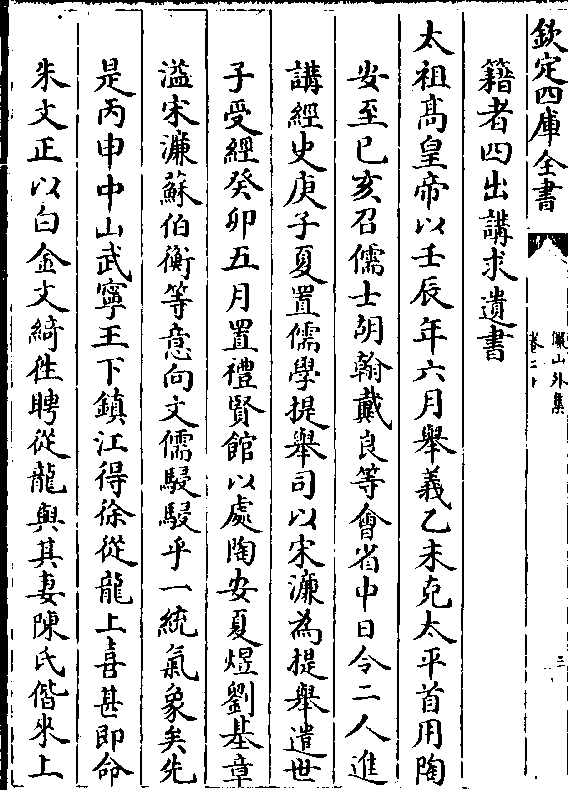 欽定四庫全書
儼山外集
卷二十
三
籍者四出講求遺書
太祖髙皇帝以壬辰年六月舉義乙未克太平首用陶
安至己亥召儒士胡翰戴良等會省中日令二人進
講經史庚子夏置儒學提舉司以宋濂為提舉遣世
子受經癸卯五月置禮賢館以處陶安夏煜劉基章
溢宋濂蘇伯衡等意向文儒駸駸乎一統氣象矣先
是丙申中山武寧王下鎮江得徐從龍上喜甚即命
朱文正以白金文綺徃聘從龍與其妻陳氏偕來上